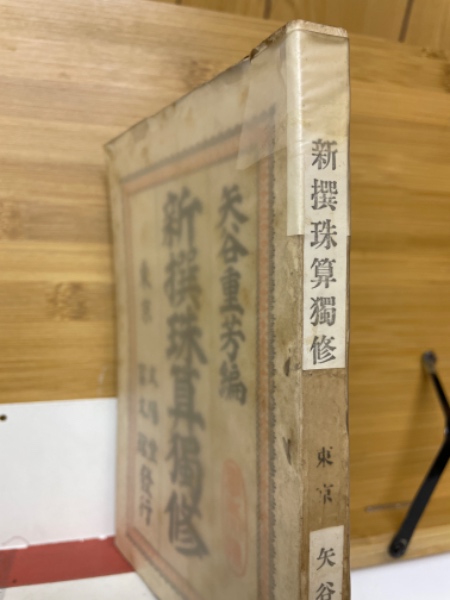 矢谷重芳編
新撰珠算獨修
東京
發行
新撰珠算獨修
東京
矢谷